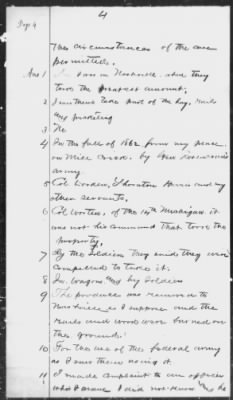 4
Dep 4
The circumstances of the case
permitted.
Ans 1 I was in Nashville when they
took the greatest amount.
2 I saw them take part of the Hay, rails
and
3 No
4 In the fall of 1862 from my place
on Mill Creek. by Gen Rosecrans's
army
5 Col Worden, Thornton Harris and my
other servants.
6 Col of the 14th Michigan. it
was not his command that took the
property.
7 By the Soldiers they said they were
compelled to take it.
8 In wagons and by Soldiers
9 The produce was removed to
Nashville as I suppose and the
rails and wood were burned on
the grounds.
10 For the use of the federal army
as I saw them using it.
11 I made complaint to an officer
whose name I did not know he